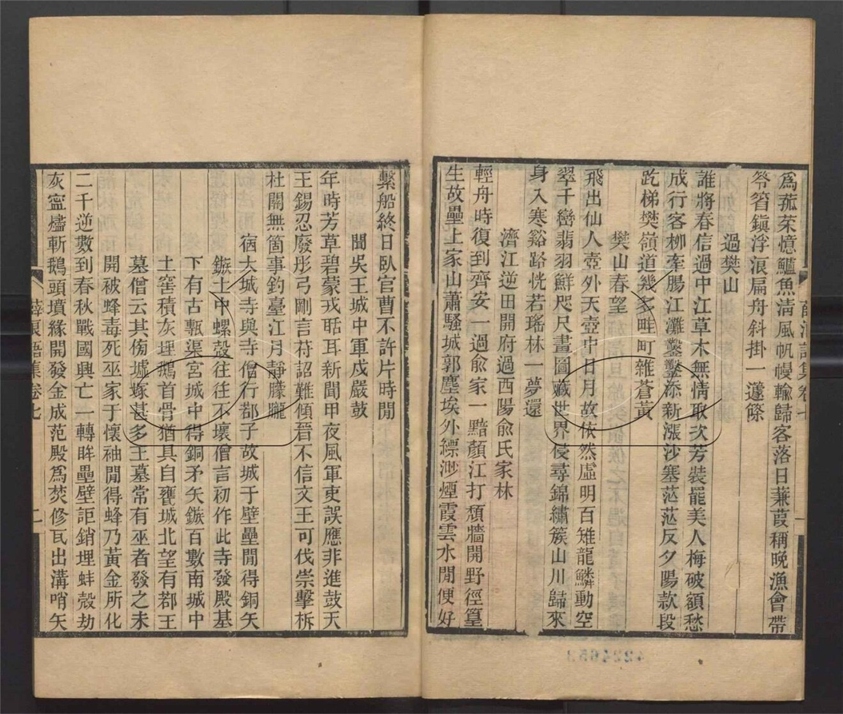 為菰茱憶鱸魚清風帆幔輸歸客落日蒹葭稱晚漁會帶
笭箵鎭浮浪扁舟斜掛一籧篨
過樊山
誰將春信過中江草木無情取次芳裝罷美人梅破額愁
成行客柳牽腸江灘鑿鑿添新漲沙塞茫茫反夕陽款段
跎梯樊嶺道幾多畦町雜蒼黃
樊山春望
飛出仙人壺外天壺中日月故依然虛明百雉龍鱗動空
翠千巒翡羽鮮咫尺畫圖藏世界侵尋錦繡簇山川歸來
身入寒谿路恍若瑤林一夢還
濟江逆田開府過西陽俞氏家林
輕舟時復到齊安一過俞家一黯顏江打頹牆開野徑篁
生故壘上家山蕭騷城郭塵埃外縹渺煙霞雲水閒便好
繫船終日臥官曹不許片時閒
聞吳王城中軍戍嚴鼓
年時芳草碧蒙戎聒耳新聞甲夜風軍吏誤應非進鼓天
王錫忍廢彤弓剛言苻詔難傾晉不信文王可伐崇擊柝
杜闇無箇事釣臺江月靜朦朧
宿大城寺與寺僧行鄀子故城于壁壘閒得銅矢
鏃土中螺殼往往不壞僧言初作此寺發殿基
下有古甎渠宮城中得銅矛矢鏃百數南城中
土窖積灰埋鵝首骨猶具自甕城北望有鄀王
墓僧云其傍墟塚甚多王墓常有巫者發之未
開被蜂毒死巫家于懷袖閒得蜂乃黃金所化
二千逆數到春秋戰國興亡一轉眸壘壁詎銷埋蚌殼劫
灰寧燼斬鵝頭墳緣開發金成范殿為焚修瓦出溝哨矢